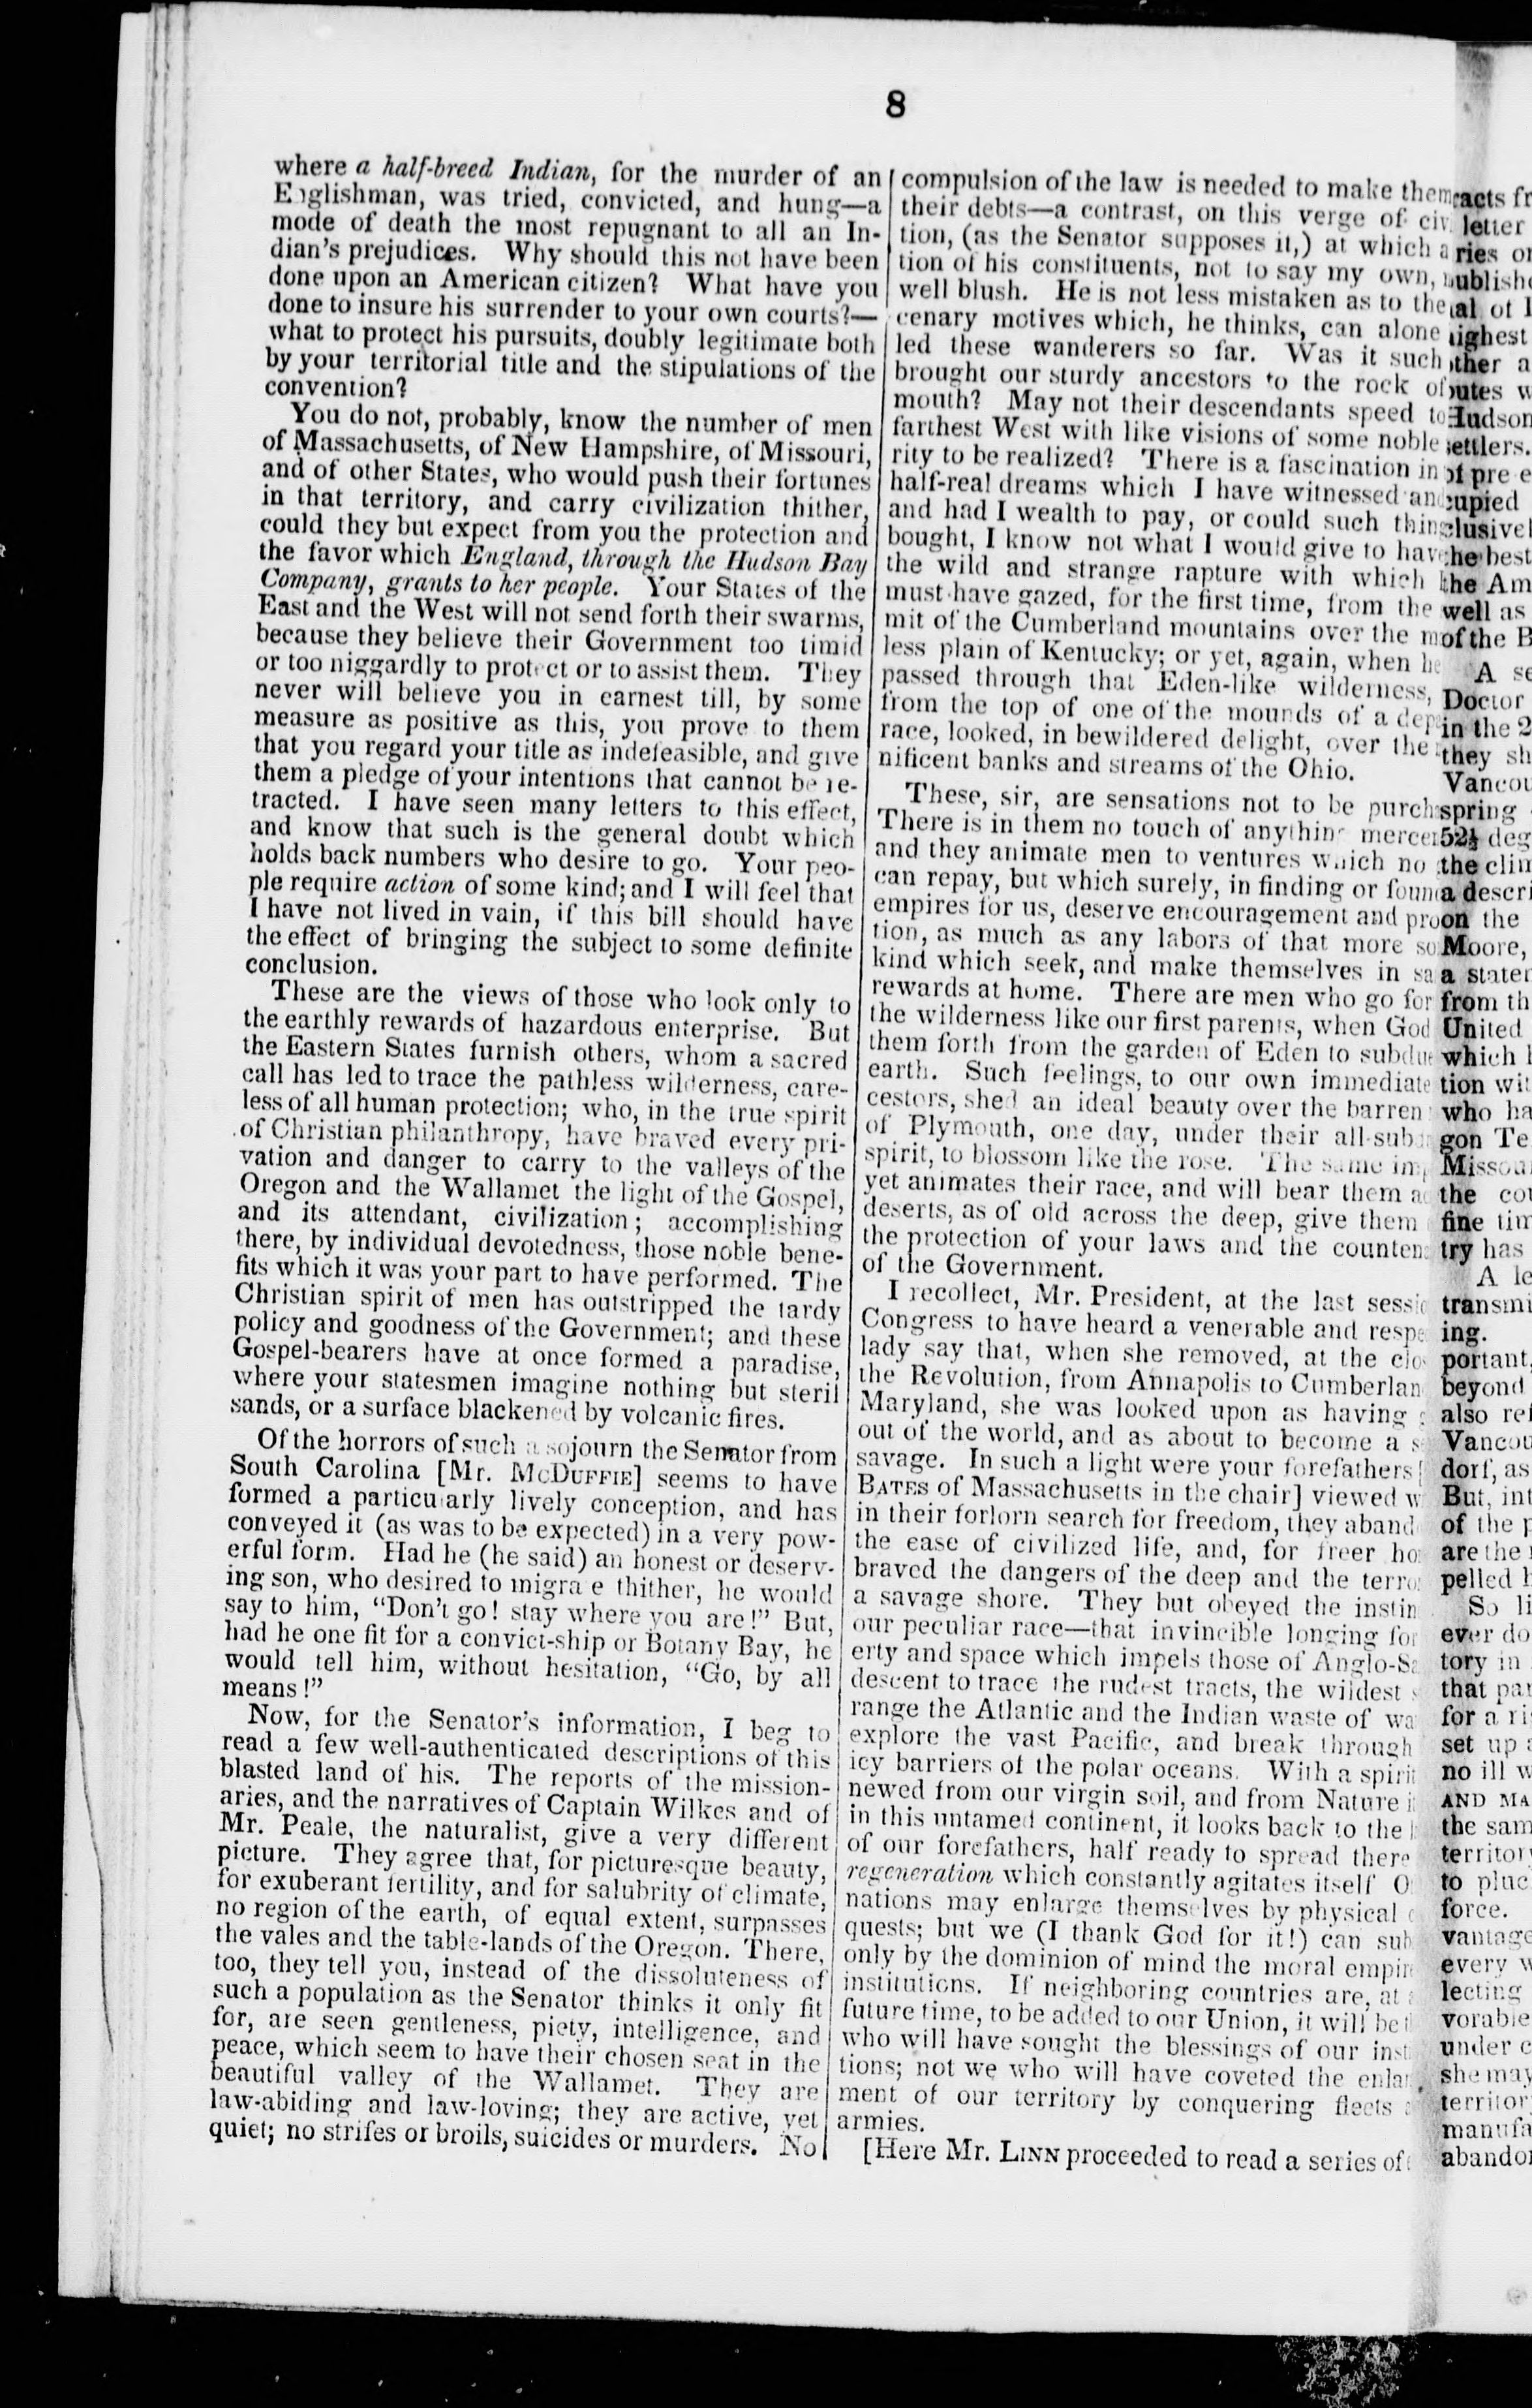 8
where a half-breed Indian, for the murder of an
Englishman, was tried, convicted, and hung—a
mode of death the most repugnant to all an In-
dian's prejudices. Why should this not have been
done upon an American citizen? What have you
done to insure his surrender to your own courts?—
what to protect his pursuits, doubly legitimate both
by your territorial title and the stipulations of the
convention?
You do not, probably, know the number of men
of Massachusetts, of New Hampshire, of Missouri,
and of other States, who would push their fortunes
in that territory, and carry civilization thither,
could they but expect from you the protection and
the favor which England, through the Hudson Bay
Company, grants to her people. Your States of the
East and the West will not send forth their swarms,
because they believe their Government too timid
or too niggardly to protect or to assist them. They
never will believe you in earnest till, by some
measure as positive as this, you prove to them
that you regard your title as indefeasible, and give
them a pledge of your intentions that cannot be re-
tracted. I have seen many letters to this effect,
and know that such is the general doubt which
holds back numbers who desire to go. Your peo-
ple require action of some kind; and I will feel that
I have not lived in vain, if this bill should have
the effect of bringing the subject to some definite
conclusion.
These are the views of those who look only to
the earthly rewards of hazardous enterprise. But
the Eastern States furnish others, whom a sacred
call has led to trace the pathless wilderness, care-
less of all human protection; who, in the true spirit
of Christian philanthropy, have braved every pri-
vation and danger to carry to the valleys of the
Oregon and the Wallamet the light of the Gospel,
and its attendant, civilization; accomplishing
there, by individual devotedness, those noble bene-
fits which it was your part to have performed. The
Christian spirit of men has outstripped the tardy
policy and goodness of the Government; and these
Gospel-bearers have at once formed a paradise,
where your statesmen imagine nothing but steril
sands, or a surface blackened by volcanic fires.
Of the horrors of such a sojourn the Senator from
South Carolina [Mr. McDUFFIE] seems to have
formed a particularly lively conception, and has
conveyed it (as was to be expected) in a very pow-
erful form. Had he (he said) an honest or deserv-
ing son, who desired to migra e thither, he would
say to him, "Don't go! stay where you are!" But,
had he one fit for a convict-ship or Botany Bay, he
would tell him, without hesitation, "Go, by all
means!"
Now, for the Senator's information, I beg to
read a few well-authenticated descriptions of this
blasted land of his. The reports of the mission-
aries, and the narratives of Captain Wilkes and of
Mr. Peale, the naturalist, give a very different
picture. They agree that, for picturesque beauty,
for exuberant fertility, and for salubrity of climate,
no region of the earth, of equal extent, surpasses
the vales and the table-lands of the Oregon. There,
too, they tell you, instead of the dissoluteness of
such a population as the Senator thinks it only fit
for, are seen gentleness, piety, intelligence, and
peace, which seem to have their chosen seat in the
beautiful valley of the Wallamet. They are
law-abiding and law-loving; they are active, yet
quiet; no strifes or broils, suicides or murders. No
compulsion of the law is needed to make them
their debts—a contrast, on this verge of civ
tion, (as the Senator supposes it,) at which a
tion of his constituents, not to say my own,
well blush. He is not less mistaken as to the
cenary motives which, he thinks, can alone
led these wanderers so far. Was it such
brought our sturdy ancestors to the rock of
mouth? May not their descendants speed to
farthest West with like visions of some noble
rity to be realized? There is a fascination in
half-real dreams which I have witnessed an
and had I wealth to pay, or could such thin
bought, I know not what I would give to hav
the wild and strange rapture with which
must have gazed, for the first time, from the
mit of the Cumberland mountains over the m
less plain of Kentucky; or yet, again, when he
passed through that Eden-like wilderness,
from the top of one of the mounds of a dep
race, looked, in bewildered delight, over the
nificent banks and streams of the Ohio.
These, sir, are sensations not to be purch
There is in them no touch of anything mercen
and they animate men to ventures which no
can repay, but which surely, in finding or foun
empires for us, deserve encouragement and pro
tion, as much as any labors of that more so
kind which seek, and make themselves in sa
rewards at home. There are men who go for
the wilderness like our first parents, when God
them forth from the garden of Eden to subdue
earth. Such feelings, to our own immediate
cestors, shed an ideal beauty over the barren
of Plymouth, one day, under their all-sub
spirit, to blossom like the rose. The same im
yet animates their race, and will bear them a
deserts, as of old across the deep, give them
the protection of your laws and the counten
of the Government.
I recollect, Mr. President, at the last sessi
Congress to have heard a venerable and respe
lady say that, when she removed, at the clo
the Revolution, from Annapolis to Cumberlan
Maryland, she was looked upon as having
out of the world, and as about to become a s
savage. In such a light were your forefathers [
BATES of Massachusetts in the chair] viewed w
in their forlorn search for freedom, they aband
the ease of civilized life, and, for freer ho
braved the dangers of the deep and the terro
a savage shore. They but obeyed the instin
our peculiar race—that invincible longing for
erty and space which impels those of Anglo-Sa
descent to trace the rudest tracts, the wildest s
range the Atlantic and the Indian waste of wa
explore the vast Pacific, and break through
icy barriers of the polar oceans. With a spirit
newed from our virgin soil, and from Nature i
in this untamed continent, it looks back to the
of our forefathers, half ready to spread there
regeneration which constantly agitates itself O
nations may enlarge themselves by physical c
quests; but we (I thank God for it!) can sub
only by the dominion of mind the moral empir
institutions. If neighboring countries are, at
future time, to be added to our Union, it will be t
who will have sought the blessings of our inst
tions; not we who will have coveted the enlar
ment of our territory by conquering fleets
armies.
[Here Mr. LINN proceeded to read a series of
racts fr
letter
ries o
ublish
al of
ighest
ther a
utes w
Hudson
settlers.
of pre e
cupied
clusivel
he best
the Am
well as
of the B
A se
Doctor
in the 2
they sh
Vancou
spring
52½ deg
the clim
a descri
on the
Moore,
a stater
from th
United
which
tion wit
who ha
gon Te
Missour
the cou
fine tim
try has
A le
transmi
ing.
portant,
beyond
also ref
Vancou
dorf, as
But, int
of the p
are the
pelled
So li
ever do
tory in
that par
for a ri
set up
no ill w
AND MA
the sam
territory
to pluc
force.
vantage
every w
lecting
vorable
under c
she may
territor
manufa
abandon